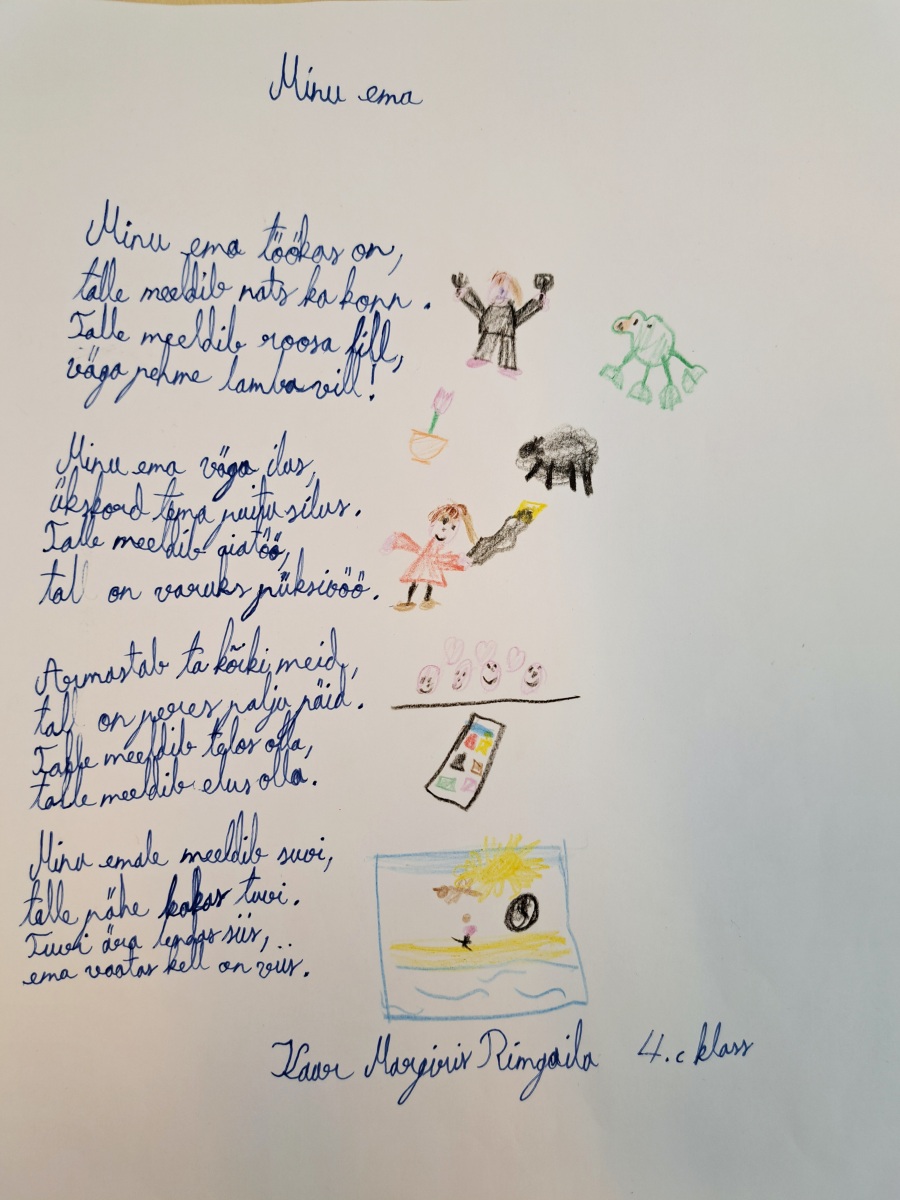 Minu ema
Minu ema töökas on,
talle meeldib nats ka konn.
Talle meeldib roosa lill,
väga pehme lamba vill!
Minu ema väga ilus,
ükskord tema puitu silus.
Talle meeldib aiatöö,
tal on varuks püksivöö.
Armastab ta kõiki meid,
tal on peres palju päid.
Talle meeldib telos olla,
talle meeldib elus olla.
Minu emale meeldib suvi,
talle pähe kakas tuvi.
Tuvi ära lendas siis,
ema vaatas kell on viis.
Kaur Margiris Rimgaila 4.c klass